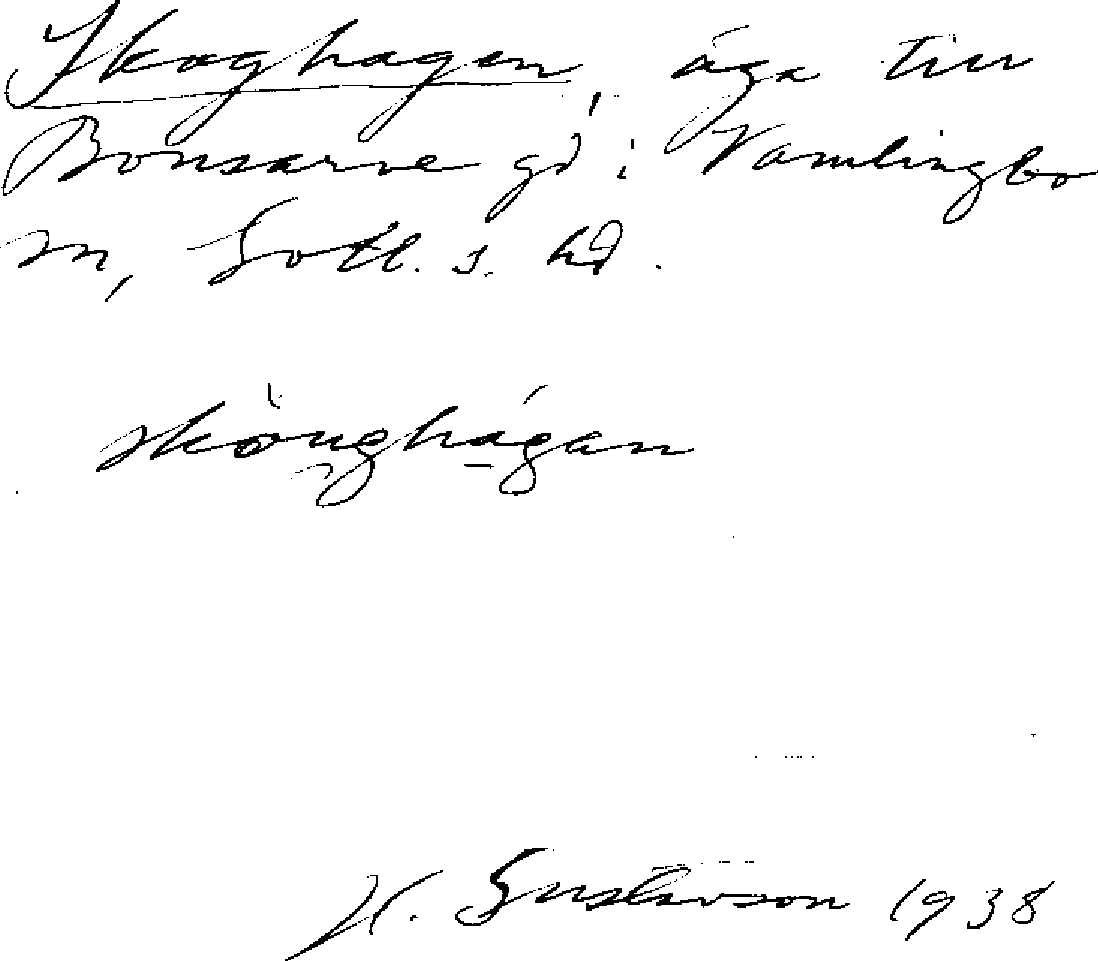 Skoghagen, äga till
Bonsarve gd i Vamlingbo
sn, Gotl. s. hd.
skòughágan
H. Gustavson 1938